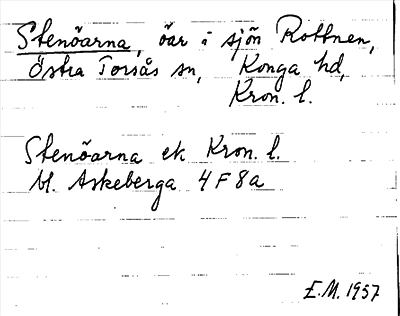 Stenöarna, öar i sjön Rottnen,
Östra Torsås sn, Konga hd,
Kron. l.
Stenöarna ek Kron. l.
bl. Askeberga 4F8a
E.M. 1957